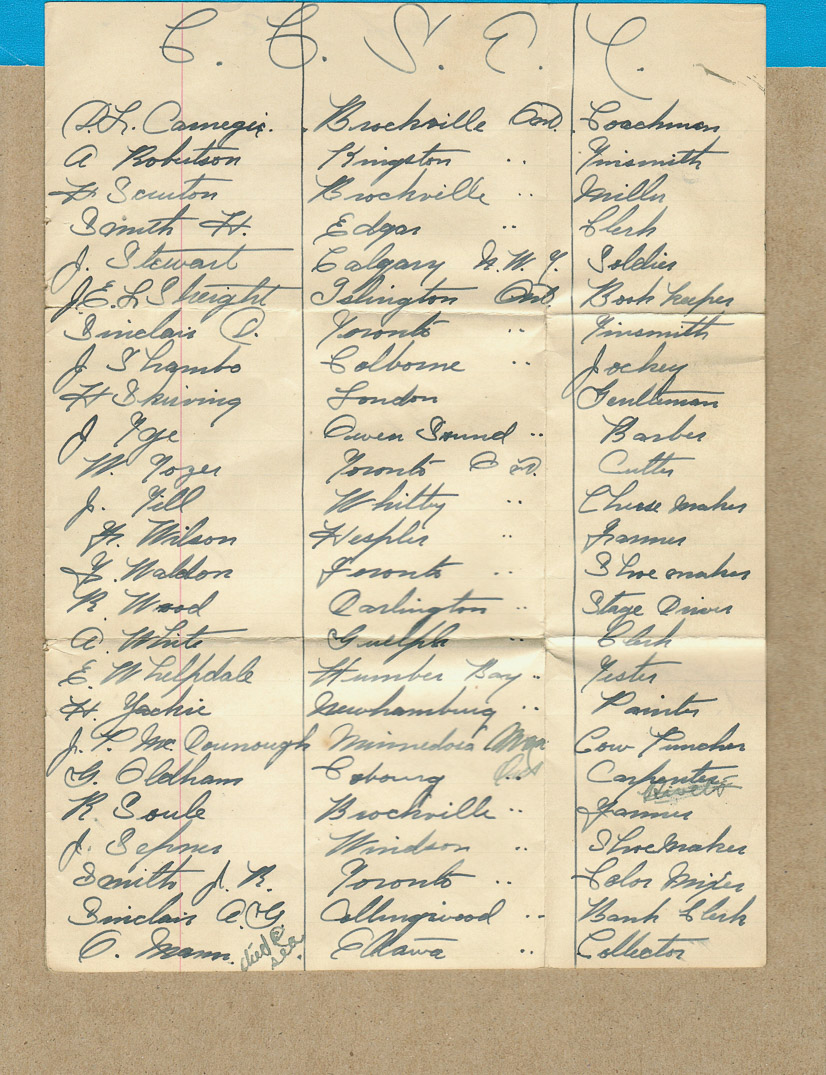 C. C. S. E. C.
D.L. Carnegie. Brockville Ont. Coachman
A Robertson Kingston " Tinsmith
H Scruton Brockville " Miller
Smith H. Edgar " Clerk
J. Stewart Calgary N.W.T. Soldier
J.E.L. Sheight Islington Ont. Book Keeper
Sinclair D. Toronto " Tinsmith
J Shambo Colborne " Jockey
H Skirving London Gentleman
J Tye Owen Sound " Barber
W. Tozer Toronto Cutter
J. Till Whitby " Cheese maker
Wilson Hespler " Farmer
Waldon Toronto " Shoe maker
R Wood Darlington " Stage Driver
A. White Guelph " Clerk
E. Whelpdale Humber Bay " Tester
H. Yackie Newhamburg " Painter
J. P. Mc Dounough Minnedosa Man Cow Puncher
G. Oldham Cobourg Ont Carpenter
R Soule Brockville " Farmer
J. Windsor " Shoe Maker
Smith J. R. Toronto " Color Mixer
Sinclair A.G Collingwood " Bank Clerk
O. Mann. Ottawa " Collector
died @ sea